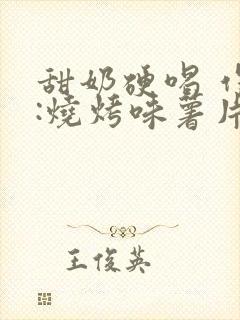 甜奶硬唱
:燒烤味薯片
王俊英